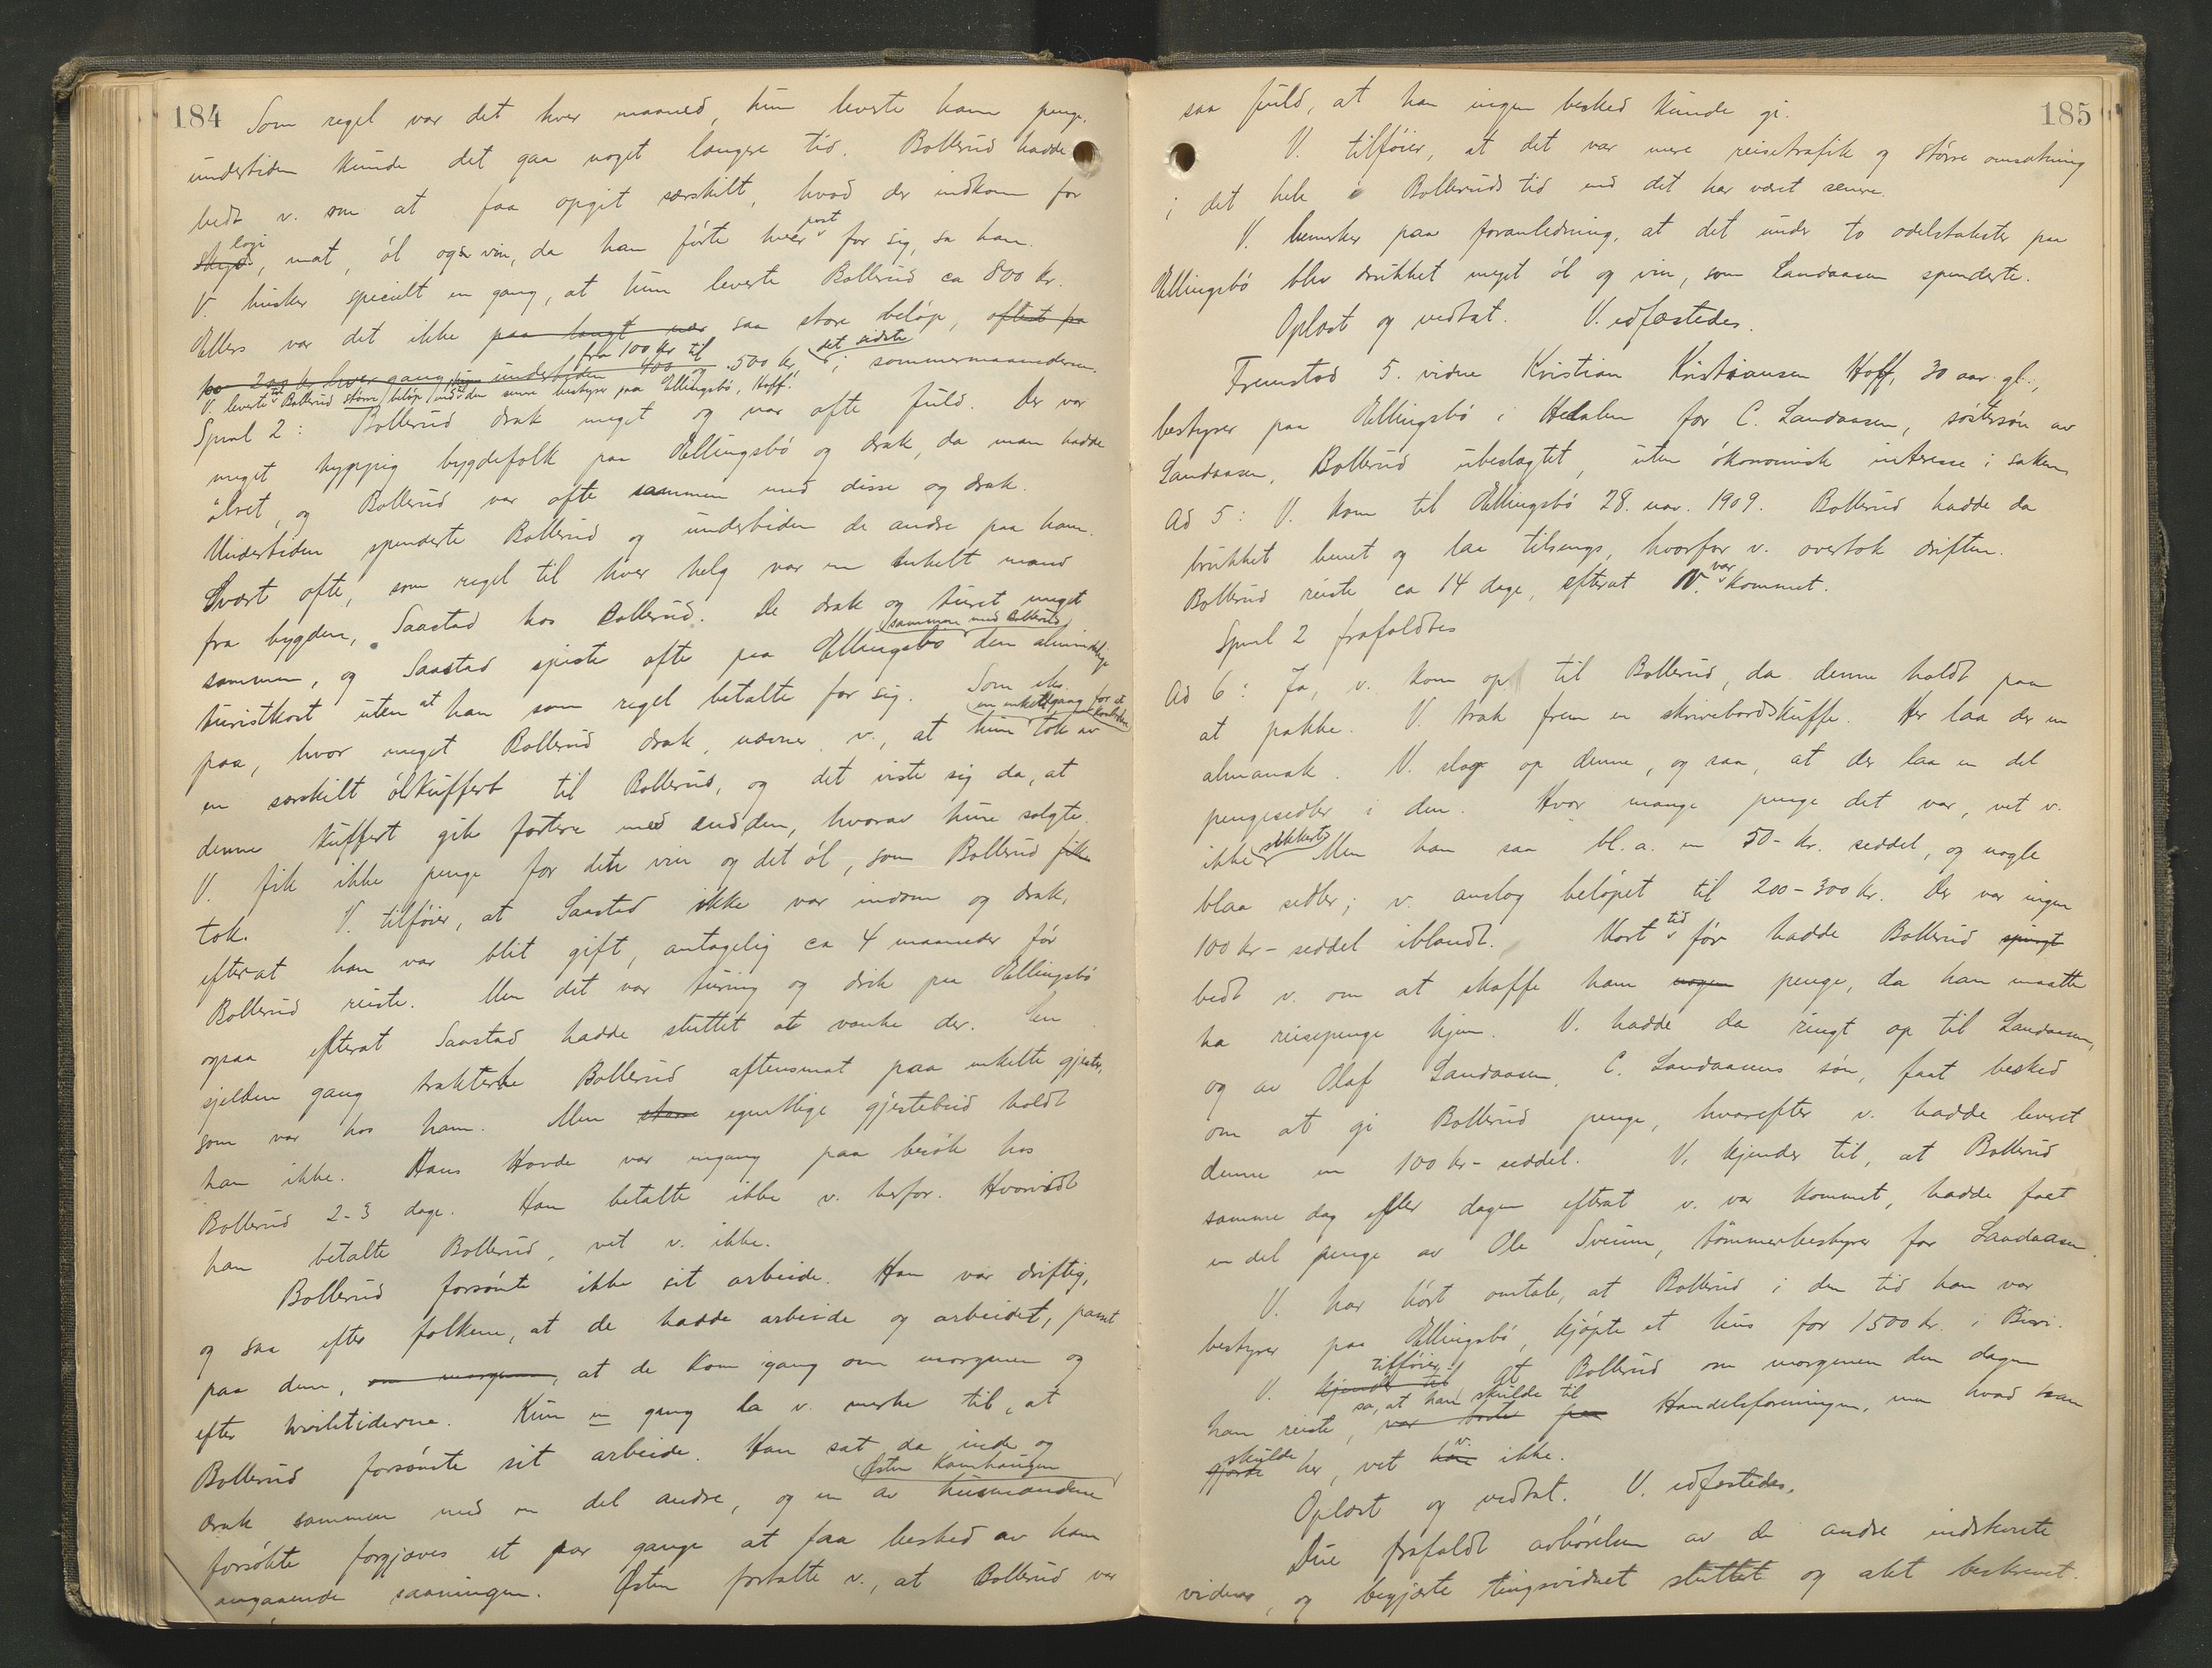 184
Som regel var det hver maaned, hun leverte ham penge,
undertiden kunde det gaa noget længre tid. Bollerud hadde
bedt v. om at faa opgit særskilt, hvad der indkom for
skyds, logi, mat, öl og vin, da han förte hver post for sig, sa han.
V. husker specielt en gang, at hun leverte Bollerud ca 800 kr.
Ellers var det ikke paa langt nær saa store belöp, oftest fra
100 200 kr hver gang, undertiden 400 og fra 100 kr til 500 kr, det sidste i sommermaanederne.
V. leverte til Bollerud större belöp end den senere bestyrer paa Ellingsbö, Hoff.
Spml 2: Bollerud drak meget og var ofte fuld. Der var
meget hyppig bygdefolk paa Ellingsbö og drak, da man hadde
ölret, og Bollerud var ofte sammen med disse og drak.
Undertiden spenderte Bollerud og undertiden de andre paa ham.
Svært ofte, som regel til hver helg var en enkelt mand
fra bygden, Saastad hos Bollerud. De drak og turet meget
sammen, og Saastad spiste ofte paa Ellingsbö sammen med Bollerud den almindelige
turistkost uten at han som regel betalte for sig. Som eks.
paa, hvor meget Bollerud drak, nævner v., at hun en enkelt gang for at kontrollere tok av
en særskilt ölkuffert til Bollerud, og det viste sig da, at
denne kuffert gik fortere med end den, hvorav hun solgte.
V. fik ikke penge for den vin og det öl, som Bollerud fik
tok. V. tilföier, at Saastad ikke var indom og drak,
efterat han var blit gift, antagelig ca 4 maaneder för
Bollerud reiste. Men det var turing og drik paa Ellingsbö
ogsaa efterat Saastad hadde sluttet at vanke der. En
sjelden gang trakterte Bollerud aftensmat paa enkelte gjester,
som var hos ham. Men store egentlige gjestebud holdt
han ikke. Hans Hovde var engang paa besök hos
Bollerud 2-3 dage. Han betalte ikke v. herfor. Hvorvidt
han betalte Bollerud, vet v. ikke.
Bollerud forsömte ikke sit arbeide. Han var driftig,
og saa efter folkene, at de hadde arbeide og arbeidet, passet
paa dem, om morgenen, at de kom igang om morgenen og
efter hviletiderne. Kun en gang la v. merke til, at
Bollerud forsömte sit arbeide. Han sat da inde og
drak sammen med en del andre, og en av husmændene Østen Kamhaugen
forsökte forgjæves et par gange at faa besked av ham
angaaende saaningen. Østen fortalte v., at Bollerud var
185
saa fuld, at han ingen besked kunde gi.
V. tilföier, at det var mere reisetrafik og större omsætning
i det hele i Bolleruds tid end det har været senere.
V. bemerker paa foranledning, at det under to odelstakster paa
Ellingsbö blev drukket meget öl og vin, som Landaasen spenderte.
Oplæst og vedtat. V. edfæstedes.
Fremstod 5. vidne Kristian Kristiansen Hoff, 30 aar gl.,
bestyrer paa Ellingsbö i Hedalen for C. Landaasen, söstersön av
Landaasen, Bollerud ubeslægtet, uten ökonomisk interesse i saken.
Ad 5: V. kom til Ellingsbö 28. nov. 1909. Bollerud hadde da
brukket benet og laa tilsengs, hvorfor v. overtok driften.
Bollerud reiste ca 14 dage, efterat V. var kommet.
Spml 2 frafaldtes
Ad 6: Ja, v. kom op til Bollerud, da denne holdt paa
at pakke. V. trak frem en skrivebordskuffe. Her laa der en
almanak. V. slog op denne, og saa, at der laa en del
pengesedler i den. Hvor mange penge det var, vet v.
ikke sikkert. Men han saa bl.a. en 50-kr. seddel, og nogle
blaa sedler; v. anslog belöpet til 200-300 kr. Der var ingen
100 kr-seddel iblandt. Kort tid för hadde Bollerud spurgt
bedt v. om at skaffe ham nogen penge, da han maatte
ha reisepenge hjem. V. hadde da ringt op til Landaasen,
og av Olaf Landaasen, C. Landaasens sön, faat besked
om at gi Bollerud penge, hvorefter v. hadde leveret
denne en 100 kr-seddel. V. kjender til, at Bollerud
samme dag eller dagen efterat v. var kommet, hadde faat
en del penge av Ole Sveum, tömmerbestyrer for Landaasen.
V. har hört omtale, at Bollerud i den tid han var
bestyrer paa Ellingsbö, kjöpte et hus for 1500 kr. i Biri.
V. kjender til tilföier, at Bollerud om morgenen den dagen
han reiste, var borte paa sa, at han skulde til Handelsforeningen, men hvad han
gjorde skulde her, vet han v. ikke.
Oplæst og vedtat. V. edfæstedes.
Due frafaldt avhörelsen av de andre indskrevete
vidner, og begjærte tingsvidnet sluttet og alet beskrevet.